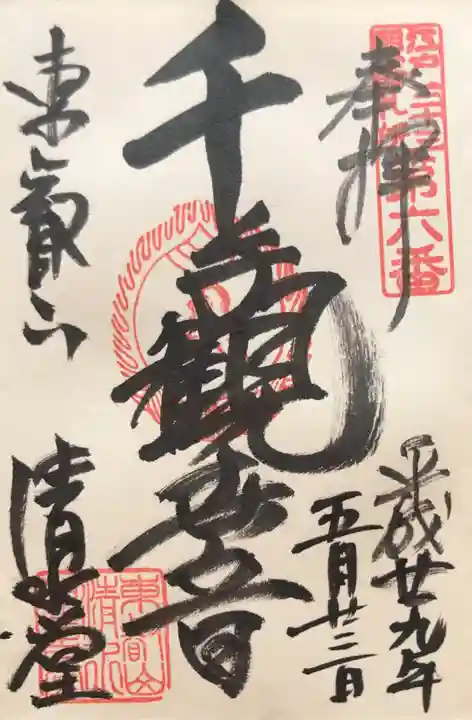 奉拝
第六番
平成廿九年
五月廿三日
千手観世音
東叡山
清水堂